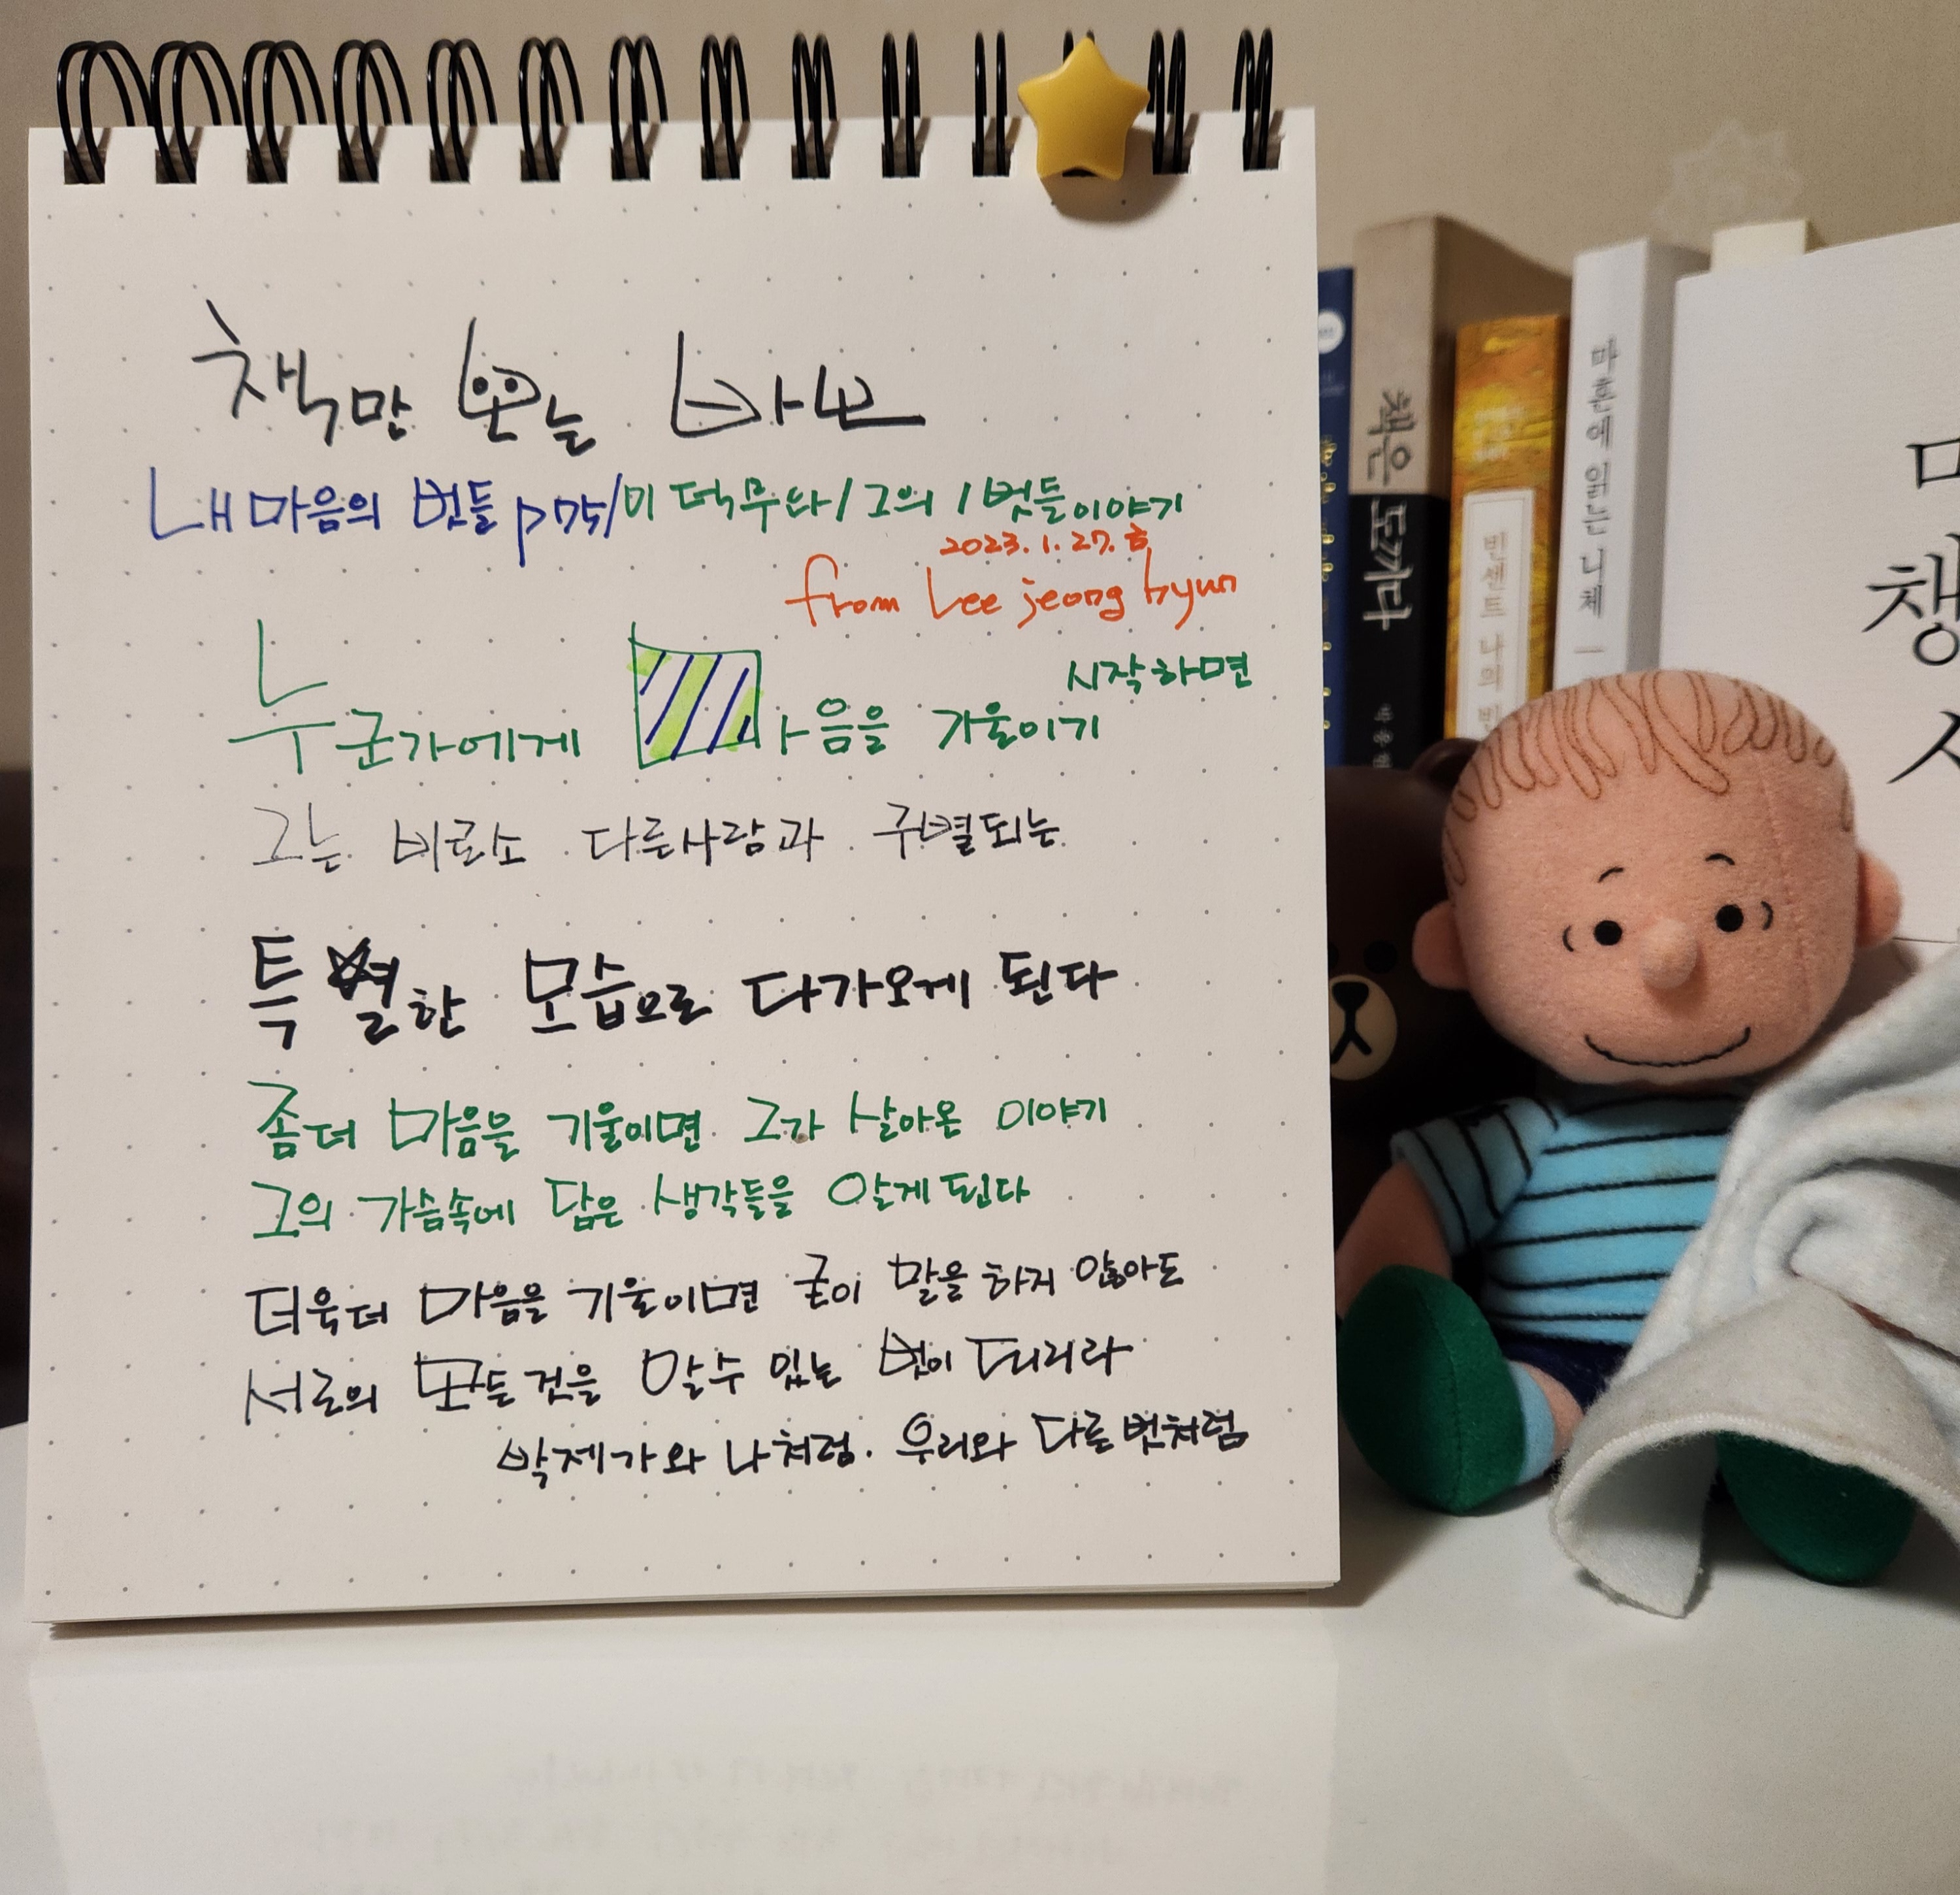 책만 보는 바보
내마음의 벗들 p75/이덕무와/그의/벗들이야기
2023.1.27.
from Lee jeong hyun
누군가에게 마음을 기울이기 시작하면
그는 비로소 다른사람과 구별되는
특별한 모습으로 다가오게 된다
좀더 마음을 기울이면 그가 살아온 이야기
그의 가슴속에 담은 생각들을 알게 된다
더욱더 마음을 기울이면 굳이 말을 하지 않아도
서로의 모든것을 알수 있는 벗이 되리라
박제가와 나처럼. 우리와 다른 벗처럼
책은 도끼다
박웅현
빈센트 나의 빈
마흔에 읽는 니체